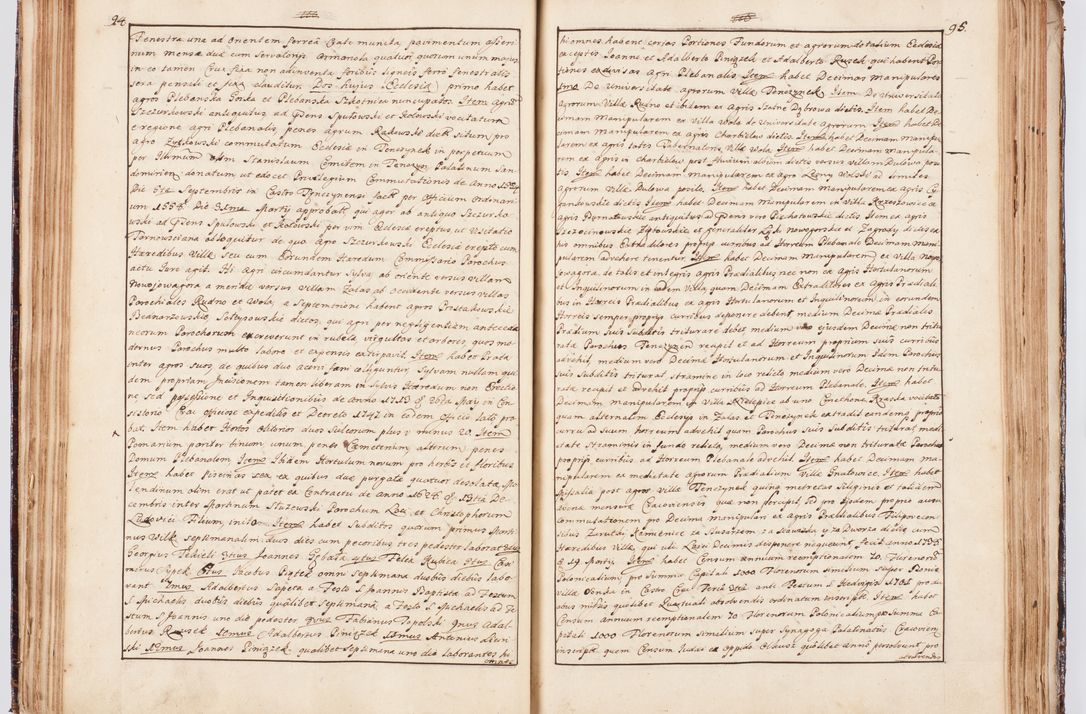 94
Fenestra una ad Orientem ferreâ Crate munita, pavimentum
num mensæ duæ cum Servatorijs Armariola quatuor
in eo tamen Crux fixa non adinventa foribus ligneis ferro fenestralis
sera pensili et fixa clauditur. Dos hujus Ecclesiæ primo habet
agros Plebanska Gorka et Plebanska Szkotnica nuncupatos Item agrũ
Szczurkowski antiquitus ad Spytkowski et vocitatum
e regione agri Plebanalis, penes agrum Radewski dictũ situm pro
agro Zyłkowski commutatum Ecclesiæ in Tenczynek in perpetuum
per Illũmum olim Stanislaum Comitem in Tenczyn Palatinum San-
domirien donatum ut edocet Privilegium Commutationis de Anno
Die Septembris in Castro Tęnczynensi fact per officium Ordinari-
um 1558 Die Martij approbatũ, qui ager ab antiquo Szczurko-
ski et Spytkowski et per vim Ecclesiæ ereptus ut Visitatio
Tarnowsciana obloquitur de quo Agro Szczurkowski Ecclesiæ erepto cum
Hæredibus Villæ seu cum Eorundem Hæredum Commissario Parochus
actu Jure agit. Hi agri circumdantur Sylva ab oriente versus villam
Nowojowagora a meridie versus villam Zalas ab occidente versus villas
Parochiales Rudno et Wola, a Septentrione habent agros
dictos, qui agri per negligentiam antece
neorum Parochorum excreverunt in rubeta virgultas et arbores quos mo
dernus Parochus multo labore et expensis extirpavit. Item habet Prata
inter agros suos de quibus duo acervi fœni colliguntur Sylvam nullam qui
dem propriam, præcisionem tamen liberam in Sylvis Hæredum non Erectio
ne sed possessione et Inquisitionibus de Anno 1713 Maij in Con
sistorio Crac officiose expeditis et Decreto 1742 in eodem officio lato pro
bat. Item habet Hortos Olitorios duos Sulcorum plus minus 20. Item
Pomarium pariter binum unum penes Cæmeterium alterum penes
Domum Plebanalem Item Ibidem Hortulum novum pro herbis et floribus
Item habet Piscinas sex ex quibus duæ purgatæ quatuor desolatæ, Mo
lendinum olim erat ut patet ex Contractu de Anno 1628 De
cembris inter Martinum Słuzewski Parochum Loci et Christophorum
Filium inito Item habet Subditos quorum primus Marti
nus Wilk septimanatim duos dies cum pecoribus tres pedester laborat
Georgius Joannes 4tus Felix Rybica 5tus Ca
mirus Sipek 6tus Jacobus Piątek omni Septimana duobus diebus labo
rant 7mus Adalbertus Sapeta a Festo S Joannis Baptistæ ad Festum
S Michaelis duobus diebus qualibet Septimana a Festo S Michaelis ad Fe
stum S Joannis uno die pedester 8vus Fabianus Topolski 9nus Adal
bertus Rusek 10mus Adalbertus Pinięzek 11mus Antonius
ski 12mus Joannes Piniązek qualibet Septimana uno die laborantes hi
omnes
95.
hi omnes habent certas Portiones Fundorum et agrorum dotalium Ecclesiæ
exceptis Joanne et Adalberto Piniązek et Adalberto Rusek qui habent Por
tiones ex agri Plebanalis Item habet Decimas Manipulares
De Universitate agrorum Villæ Tenczynek Item De Universitate
agrorum Villæ Rudno et ibidem ex Agris Szatne Dąbrowa dictis. Item habet De
cimam Manipularem ex Villa Wola de Universitate agrorum Item habet De
cimam manipularem ex agris Chorbielow dictis. Item habet Decimam manipu
larem ex agris totis Tabernalibus Villæ Wola Item habet Decimam manipula
rem ex agris in charbielow post fluvium album dictis versus villam Dulowa posi
tis Item habet Decimam manipularem ex agro Leśny Wolski ad limites
agrorum villæ Dulowa posito, Item habet Decimam Manipularem ex agris
dictis Item habet Decimam Manipularem in villa Krzeszowice ex
agris Pyrnatowskie antiquitus nunc vero Piechotowskie dictis Item ex agris
Szczocinowskie Ziętowskie et generaliter Łazki nowogorskie et Zagrody dictis ex
his omnibus Extraditores proprijs curribus ad Horreum Plebanale Decimam Mani
pularem advehere tenentur Item habet Decimam Manipularem ex Villa Nowo
jowagora de totis et integris agris Prædialibus nec non ex agris Hortulanorum
et Inquilinorum in eadem Villa quam Decimam Extraditores ex Agris Prædiali
bus in Horreis Prædialibus ex agris Hortulanorum et Inquilinorum in eorundem
Horreis semper proprijs curribus deponere debent medium Decimæ Prædialis
Prædium Suis Subditis triturare debet, medium vero ejusdem Decimæ non tritu
ratæ Parochus Tenczynen recipit et ad Horreum proprium suis curribus
advehit, medium vero Decimæ Hortulanorum et Inquilinorum Idem Parochus
suis Subditis triturat stramine in loco relicto medium vero Decimæ non tritu
ratæ recipit et advehit proprijs curribus ad Horreum Plebanale. Item habet
Decimam manipularem in Villa Nielepice ab uno Cmethone Krzesla vocitato
quam alternatim Ecclesijs in Zalas et Tenczynek extradit eandemq proprio
curru ad suum horreum advehit quam Parochus suis Subditis triturat medi
etate Straminis in fundo relicta, medium vero Decimæ non trituratæ Parochus
proprijs curribus ad Horreum Plebanale advehit. Item habet Decimam ma
nipularem ex medietate agrorum Prædialium Villæ Frutowice. Item habet
Missalia post agros villæ Tenczynek quinq metretas siliginis et totidem
avenæ mensuræ Cracoviensis quæ non percipit sed pro ijsdem proprio ausu
commutationem pro Decima manipulari ex Agris Prædialibus Filipowicen
sibus Zwrotki Kamienice za Stawiski et za Dworza dictis cum
Hæredibus Villæ, qui uti Laici Decimis disponere nequeunt fecit anno 1755
19 Martij, Item habet Censum annuum reemptionalem 70. Florenorũ
Polonicalium pro Summa Capitali 1000 Florenorum similium super Bonis
Villæ Czernka in Castro Crac Feria VIta ante Festum S Hedvigis 1701 pro du
obus missis qualibet Quartuali absolvendis ordinatum inscriptũ Item habet
Censum Annuum reemptionalem 70 Florenorum Polonicalium pro Summa Ca
pitali 1000 Florenorum similium super Synagoga Palatinatus Cracovien
inscriptũ quem Censum Judæi ex oppido Olkusz quolibet anno persolvunt pro